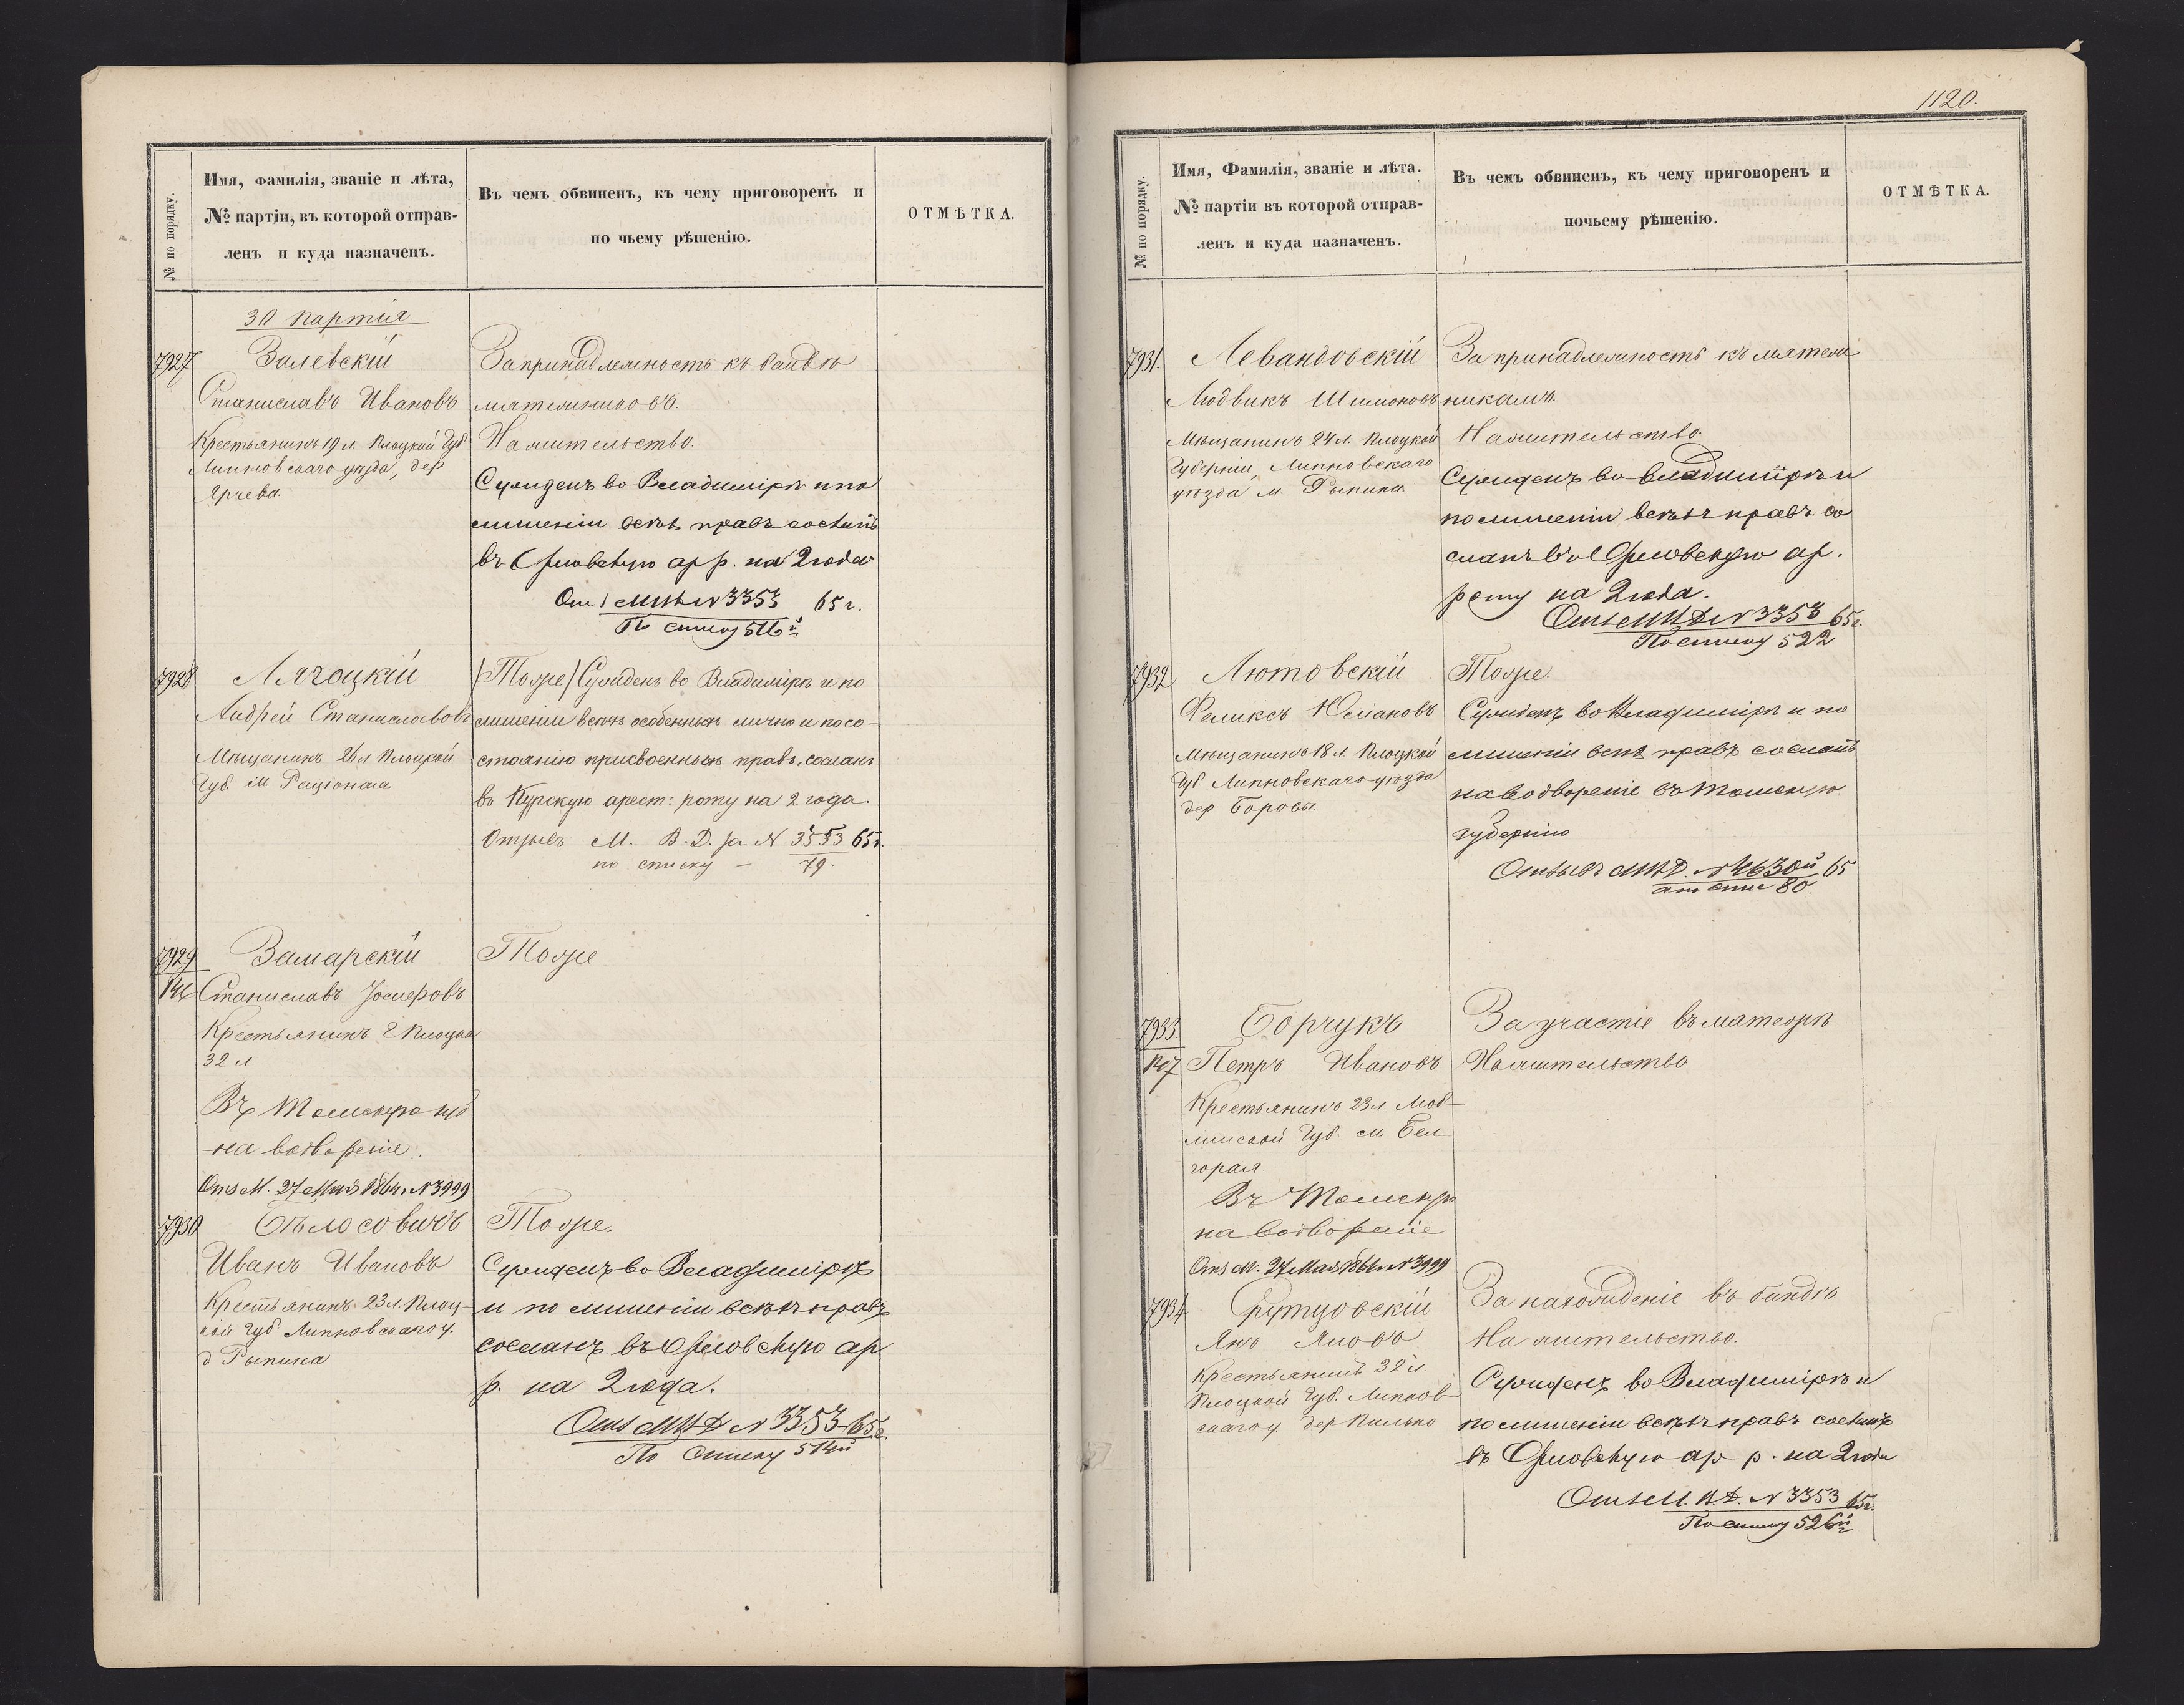 № по порядку.
Имя, фамилія, званіе и лѣта,
№ партіи, въ которой отправ-
ленъ и куда назначенъ.
Въ чемъ обвиненъ, къ чему приговоренъ и
по чьему рѣшенію.
ОТМѢТКА.
30 партія
7927
Залевскій
Станиславъ Ивановъ
Крестьянинъ 19 л Плоцкой Губ
Липновскаго уѣзда, дер
За принадлежность къ бандѣ
мятежниковъ.
На жительство.
Сужденъ во Владимірѣ и по
лишеніи всѣхъ правъ сосланъ
въ Орловскую ар р. на 2 года
№ 3353 65 г.
По списку 516й
7928
Лячоцкій
Андрей Станиславовъ
Мѣщанинъ 26 л Плоцкой
Губ. м. Раціонжа.
(Тоже) Сужденъ во Владимірѣ и по
лишеніи всѣхъ особенныхъ лично и по со-
стоянію присвоенныхъ правъ, сосланъ
въ Курскую арест: роту на 2 года.
Отзывъ М. В. Д. за N 3353 65 г.
по списку — 79.
7929
Замарскій
Станиславъ Іосифовъ
Крестьянинъ Г Плоцка
32 л
Въ Томскую губ
на водвореніе.
От М. 27 Мая 1864 г N 3999
Тоже
7930
Бѣлосовичъ
Иванъ Ивановъ
Крестьянинъ 23 л. Плоц-
кой Губ Липновскаго у.
д Рыпина
Тоже.
Сужденъ во Владимірѣ
и по лишеніи всѣхъ правъ
сосланъ въ Орловскую ар
р. на 2 года.
№ 3353 65 г
По списку 514й
1120.
№ по порядку.
Имя, Фамилія, званіе и лѣта.
№ партіи въ которой отправ-
ленъ и куда назначенъ.
Въ чемъ обвиненъ, къ чему приговоренъ и
почьему рѣшенію.
ОТМѢТКА.
7931.
Левандовскій
Людвикъ Шимоновъ
Мѣщанинъ 24 л. Плоцкой
Губерніи, Липновскаго
уѣзда м Рыпина
За принадлежность къ мятеж
никамъ.
На жительство.
Сужденъ во Владимірѣ и
по лишеніи всѣхъ правъ со
сланъ въ Орловскую ар.
роту на 2 года.
№ 3353 65 г.
По списку 522
7932
Лютовскій
Феликсъ Юліановъ
Мѣщанинъ 18 л Плоцкой
Губ Липновскаго уѣзда
дер Боровы
Тоже.
Сужденъ во Владимірѣ и по
лишеніи всѣхъ правъ сосланъ
на водвореніе въ Томскую
губернію
Отзывъ МВД. № 4630й 65
80
7933.
Борчукъ
Петръ Ивановъ
Крестьянинъ 23 л. Люб-
линской Губ. м. Бел
горая
Въ Томскую
на водвореніе
От М. 27 Мая 1864 г N 3999
За участіе въ мятежѣ
На жительство
7934
Рутцовскій
Янъ Яновъ
Крестьянинъ 32 л.
Плоцкой Губ. Липнов
скаго у. дер Пилько
За нахожденіе въ бандѣ
На жительство.
Сужденъ во Владимірѣ и
по лишеніи всѣхъ правъ сосланъ
въ Орловскую ар р. на 2 года
М. В Д. № 3353 65 г.
По списку 526й